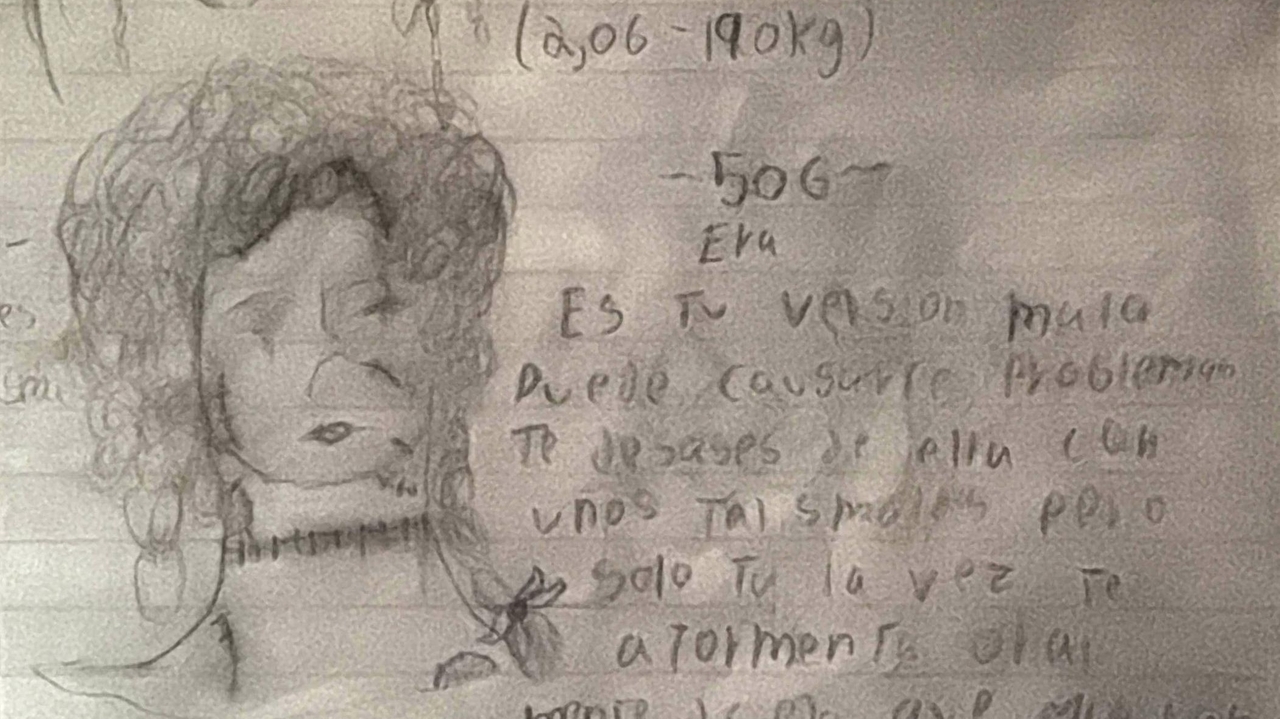 (2,06-190kg)
-506-
Era
es
Es Tu version mala
Puede causarte Problemas
Te desases de ella con
unos Talismales pero
solo Tu la vez Te
aTormenTa oral
mente